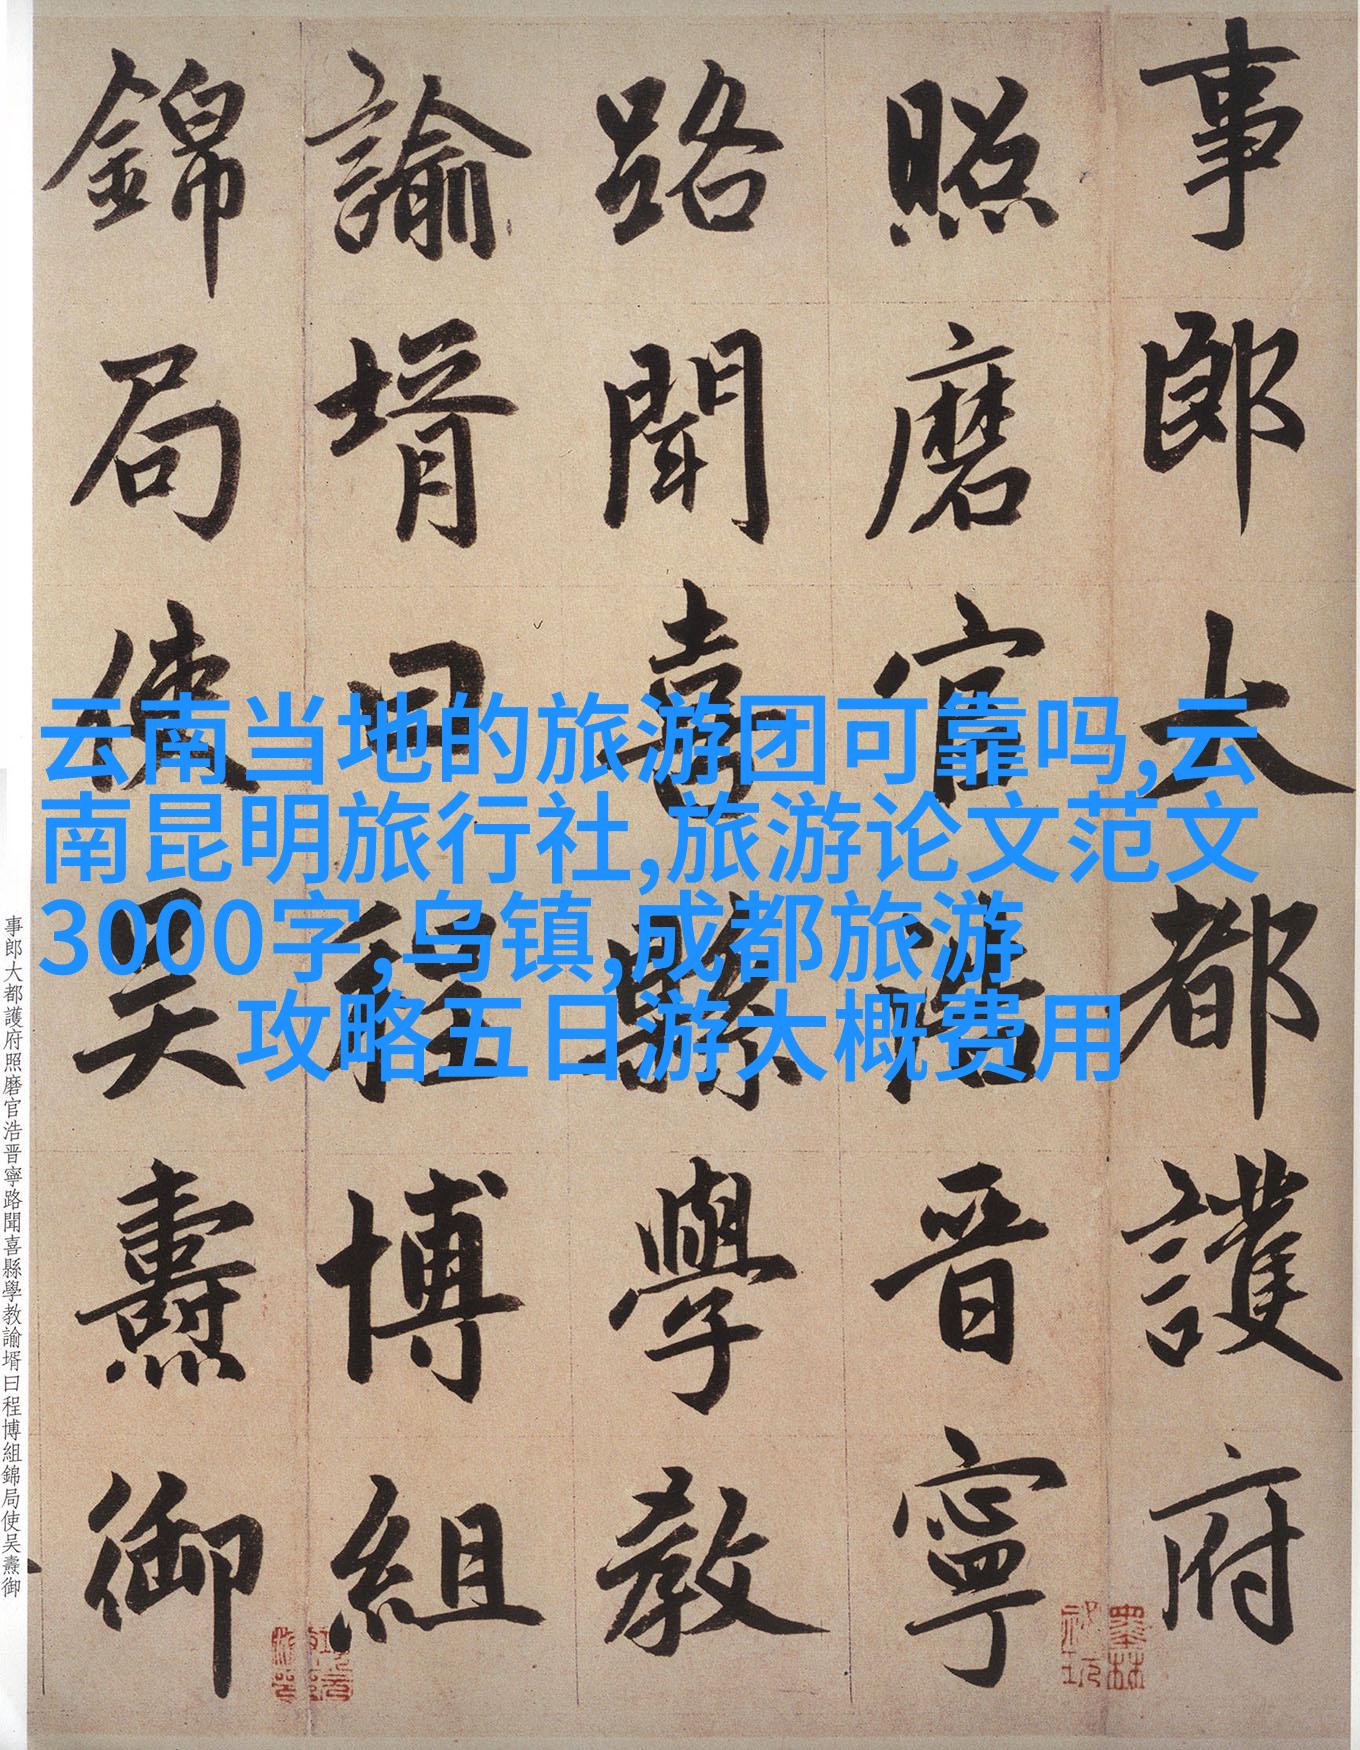 事郎大都護府
照磨官浩晋寧
路聞喜縣學教
諭壻曰程博組
錦局使吴燾御
云南当地的旅游团可靠吗,云
南昆明旅行社,旅游论文范文
3000字,乌镇,成都旅游
攻略五日游大概费用
事郎大都護府照磨官浩晋寧路聞喜縣學教諭壻曰程博組錦局使吴燾御